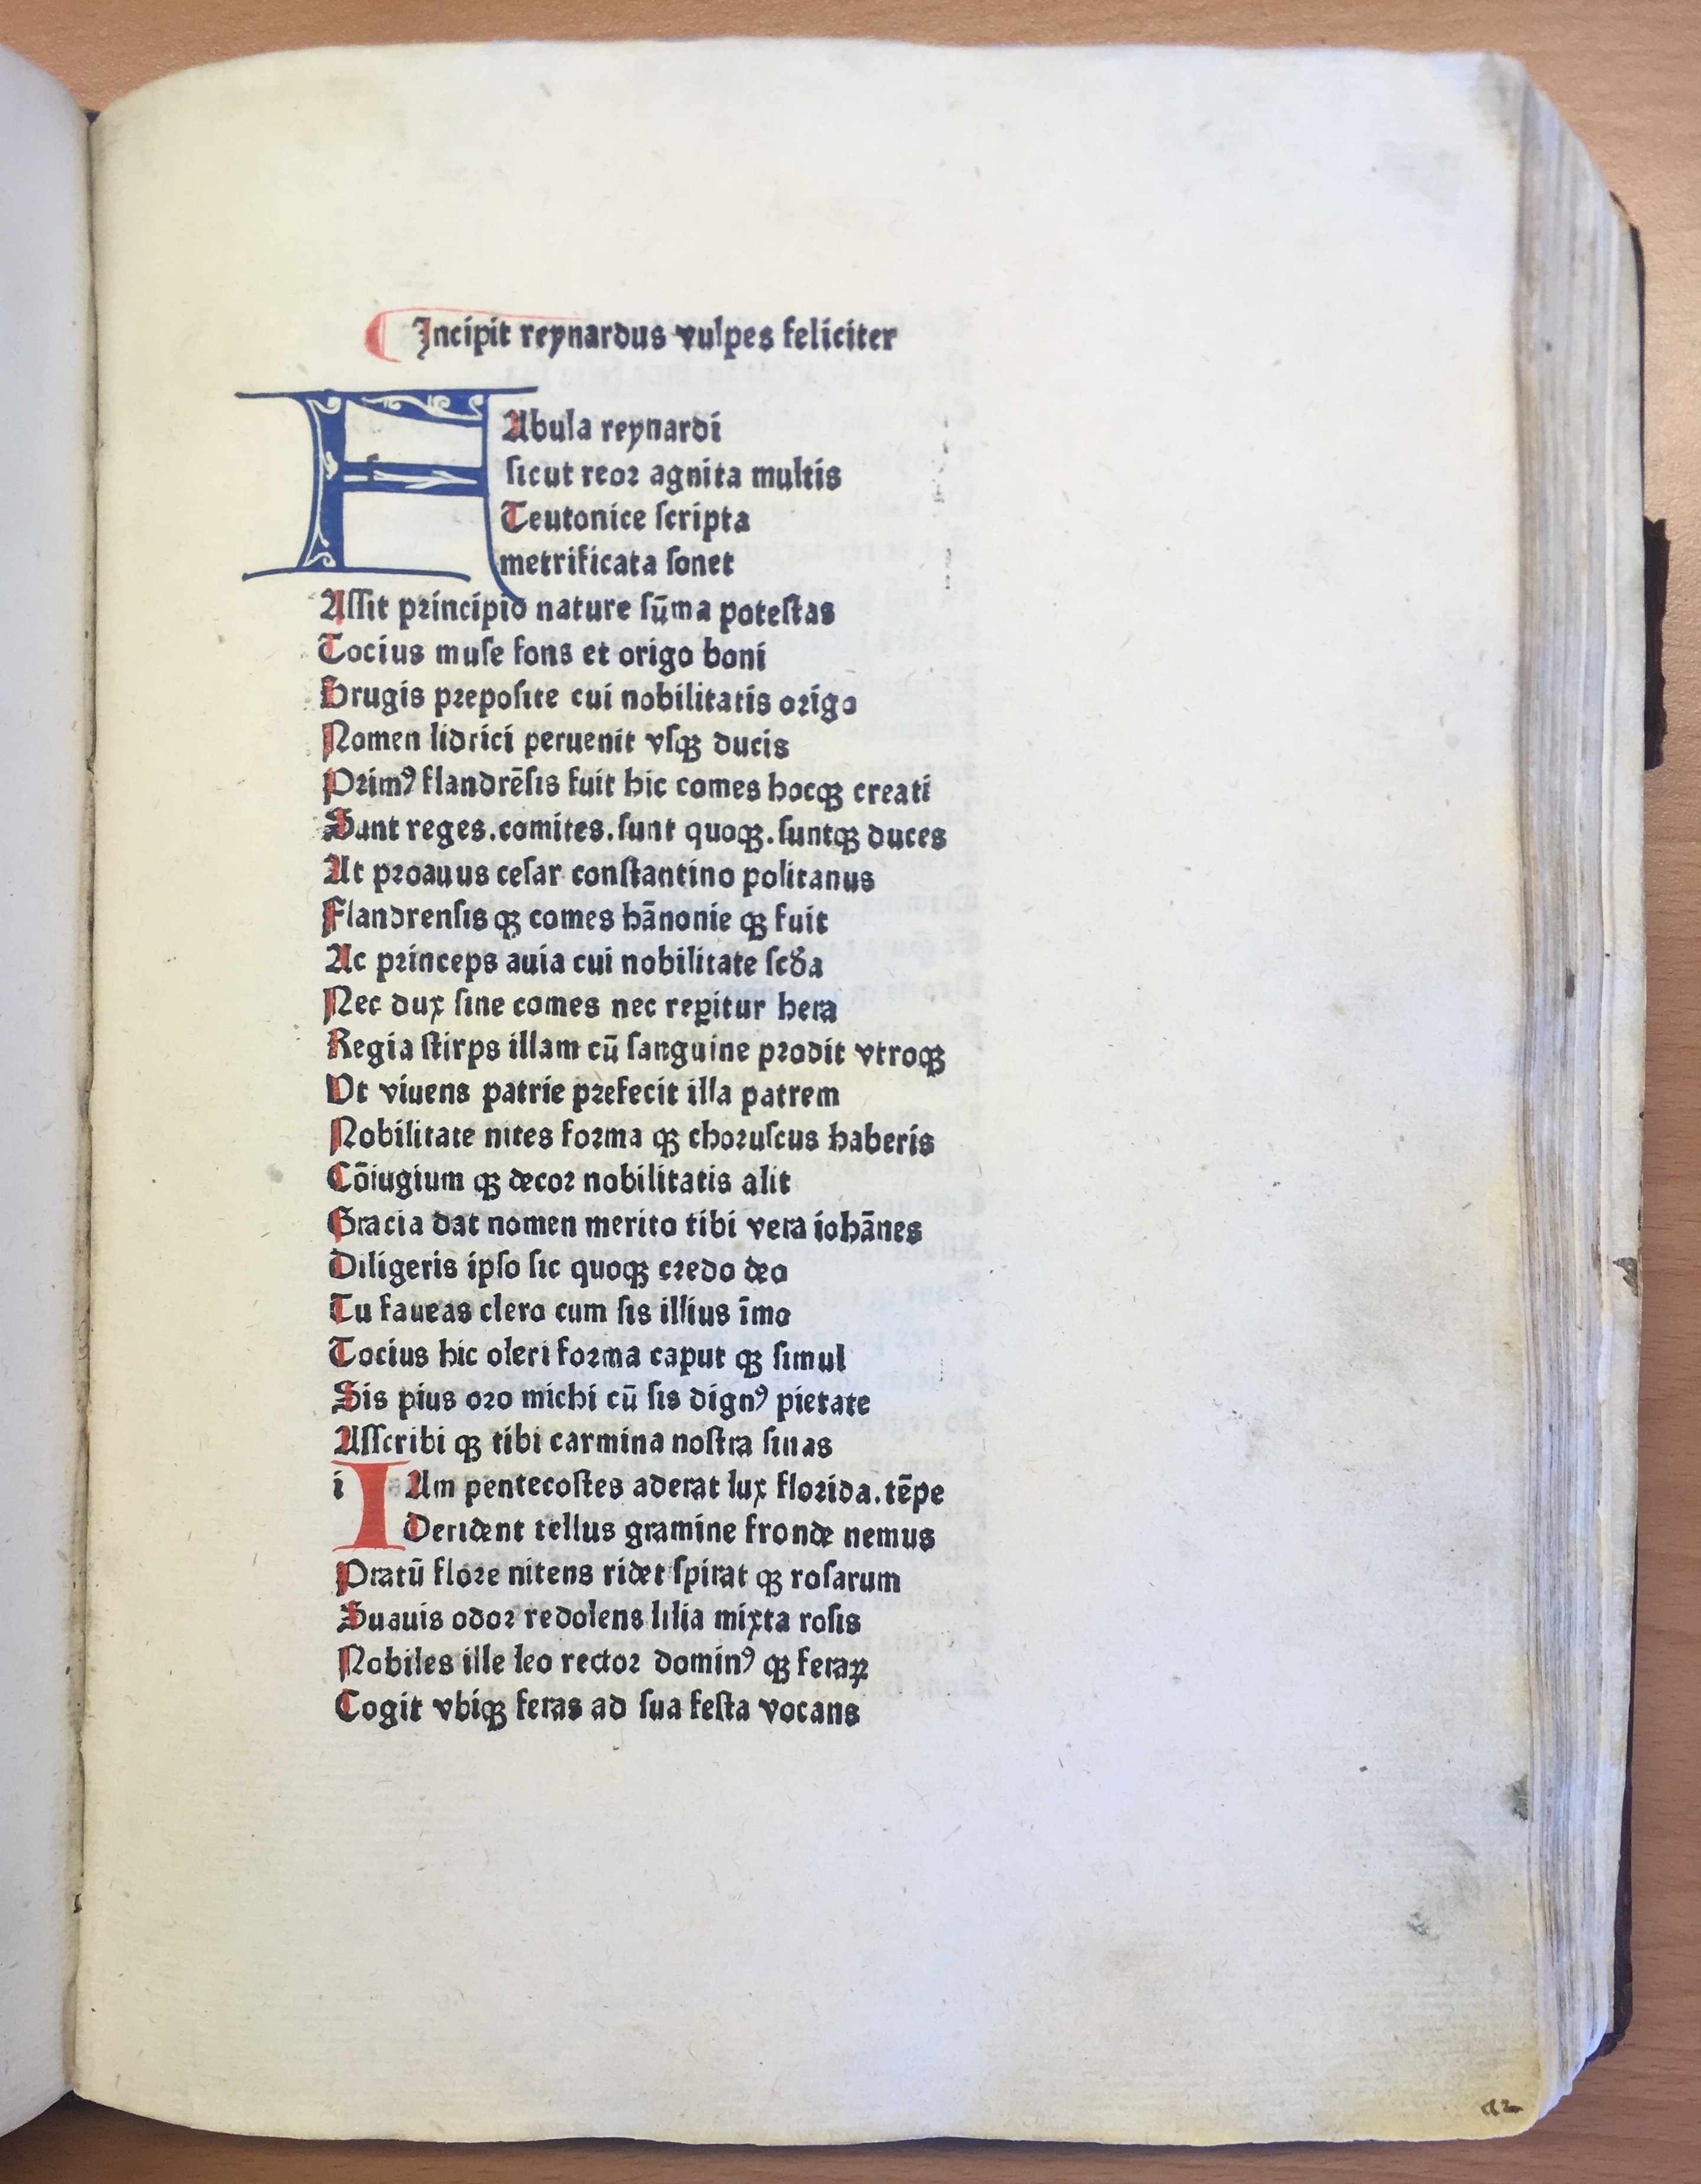 Incipit reynardus vulpes feliciter
FAbula reynardi
ſicut reoꝛ agnita multis
Teutonice ſcripta
metrificata ſonet
Aſſit pꝛincipio nature ſūma poteſtas
Tocius muſe fons et origo boni
Brugis pꝛepoſite cui nobilitatis oꝛigo
Nomen lidrici peruenit vſqꝫ ducis
Pꝛimꝰ flandrēſis fuit hic comes hocqꝫ creati
Sunt reges.comites.ſunt quoqꝫ.ſuntqꝫ duces
At pꝛoauus ceſar conſtantino politanus
Flandrenſis qꝫ comes hānonie qꝫ fuit
Ac pꝛinceps auia cui nobilitate ſcd̄a
Nec dux ſine comes nec reꝑitur hera
Regia ſtirps illam cū ſanguine pꝛodit vtroqꝫ
Vt viuens patrie pꝛefecit illa patrem
Nobilitate nites foꝛma qꝫ choꝛuſcus haberis
Cōiugium qꝫ decoꝛ nobilitatis alit
Gracia dat nomen merito tibi vera iohānes
Diligeris ipſo ſic quoqꝫ cꝛedo deo
Tu faueas clero cum ſis illius īmo
Tocius hic oleri foꝛma caput qꝫ ſimul
Sis pius oꝛo michi cū ſis dignꝰ pietate
Aſſcribi qꝫ tibi carmina noſtra ſinas
i IAm pentecoſtes aderat lux floꝛida.tēpe
Derident tellus gramine fronde nemus
Pratū floꝛe nitens ridet ſpirat qꝫ roſarum
Suauis odoꝛ redolens lilia mixta roſis
Nobiles ille leo rectoꝛ dominꝰ qꝫ feraꝝ
Cogit vbiqꝫ feras ad ſua feſta vocans